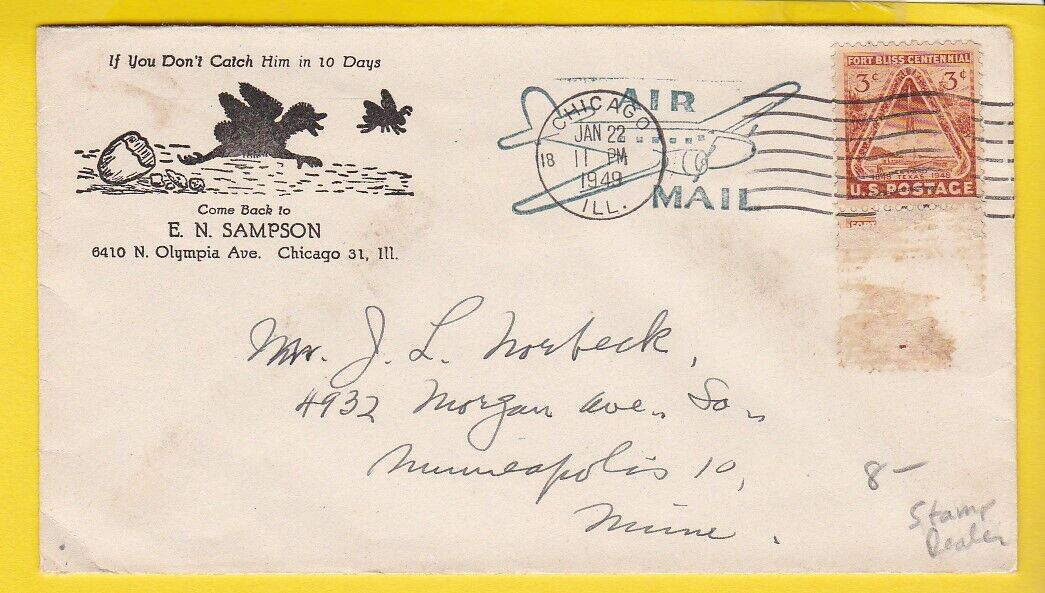 If You Don't Catch Him in 10 Days
Come Back to
E. N. SAMPSON
6410 N. Olympia Ave. Chicago 31, Ill.
AIR
MAIL
CHICAGO
JAN 22
18 11 PM
1949
ILL.
FORT BLISS CENTENNIAL
3¢ 3¢
1848 TEXAS 1948
U.S. POSTAGE
Mr. J. L. Norbeck,
4932 Morgan Ave. So.,
Minneapolis 10,
Minn.
8-
Stamp
Dealer